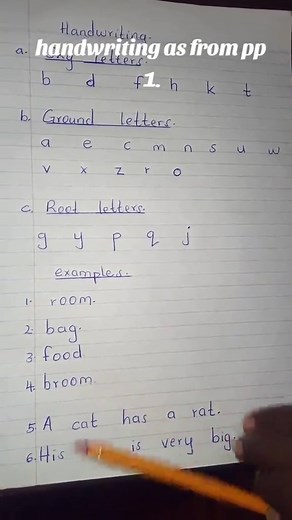 Handwriting.
handwriting as from pp
1.
a. Sky letters.
b d f h k t
b. Ground letters.
a e c m n s u w
v x z r o
c. Root letters.
g y p q j
examples.
1. room.
2. bag.
3 food.
4. broom.
5. A cat has a rat.
6. His is very big.